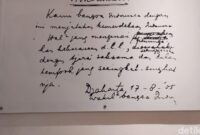 Kami bangsa Indonesia dengan
ini menjatakan kemerdekaan Indonesia
Hal2 jang mengenai
kekoeasaan d.l.l.,
dengan tjara saksama dan
tempoh jang sesingkat-
nja.
Djakarta 17-8-'05
Wakil bangsa
detik